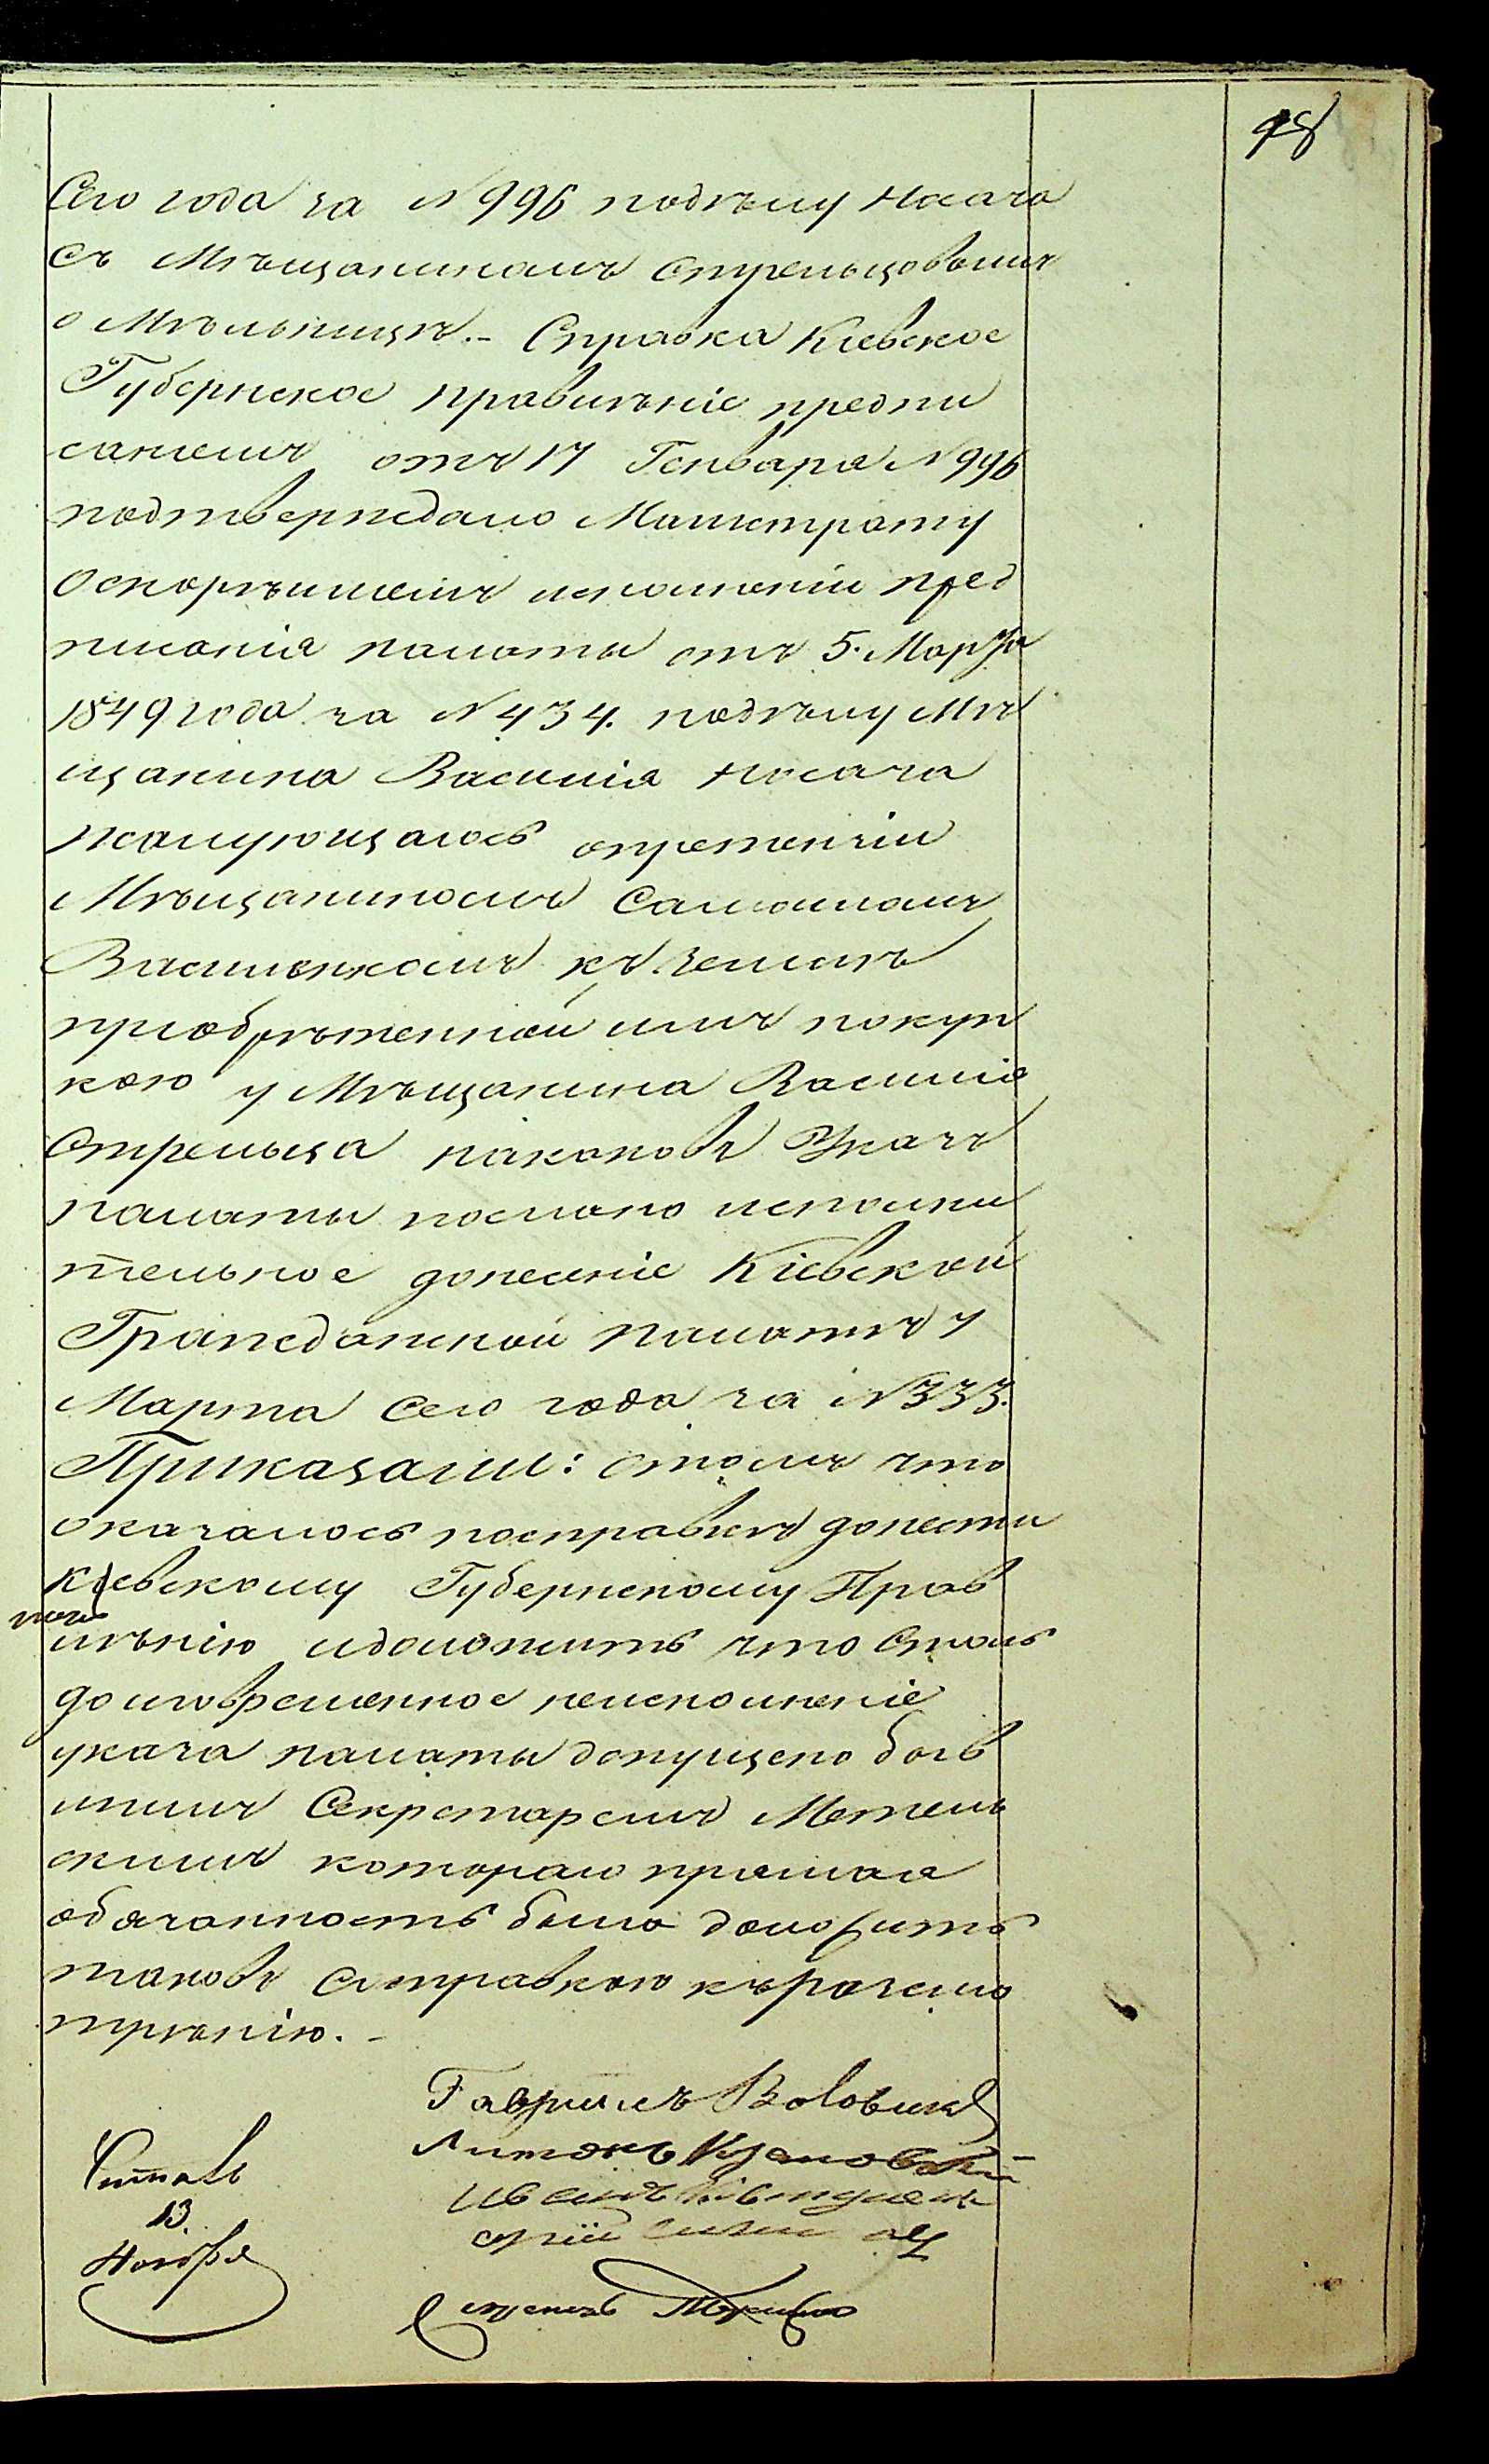 98
Сего года за N 996 подѣлу Носача
съ Мѣщаникомъ Стрельцовымъ
о Мѣльницѣ.- Справка Кіевское
Губернское правилѣніе предпи
саніемъ отъ 17 Генваря N 996
подтверждало Магистрату
оскорѣйшемъ исполненіи пред
писанія палаты отъ 5. Марта
1849 года за N 434. подѣлу Мѣ
щанина Василія Носача
жалующагось опретензіи
Мѣщаниномъ
Василенкомъ къ землѣ
приобрѣтенной имъ покуп
кою у Мѣщанина Василія
Стрельца каковой Указъ
палаты послано исполни
тельное донесеніе Кіевской
Гражданской палатѣ 7
Марта сего года за N 333.
Приказали: отомъ что
оказалось посправкѣ донести
Кіевскому Губернскому Прав
лѣнію идоложить что Столь
долговременное неисполненіе
указа палаты допущено быв
шимъ Секретаремъ Метель
скимъ котораго прямая
обязанность была доложить
таковой Сосправкою къразсмо
трѣнію.-
Гавриилъ Вововик
Антонъ
Иванъ
Читалъ
13
Ноября